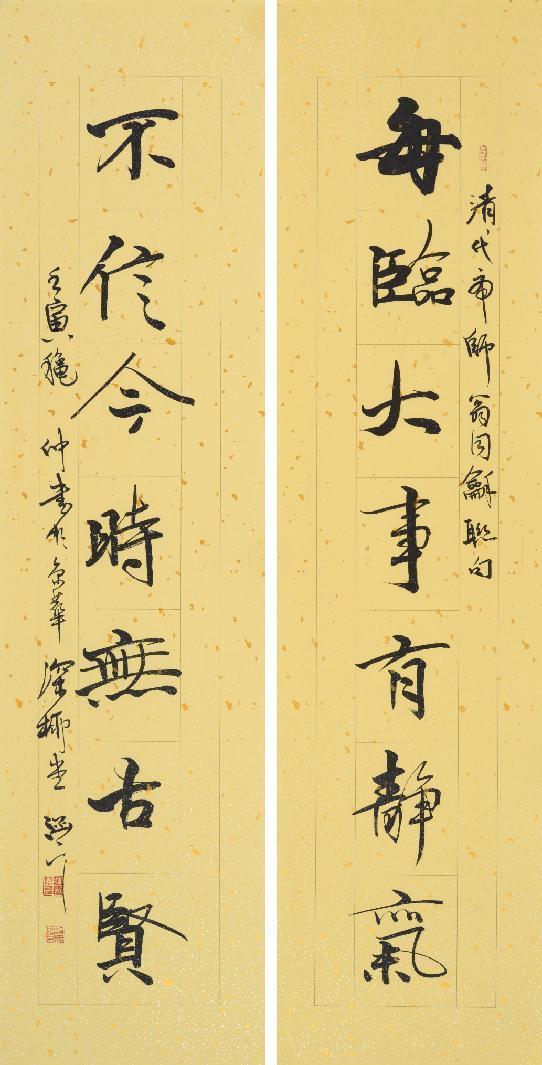 每臨大事有靜氣
清代帝師翁同龢聯句
不信今時無古賢
壬寅龝仲書於京華深柳堂